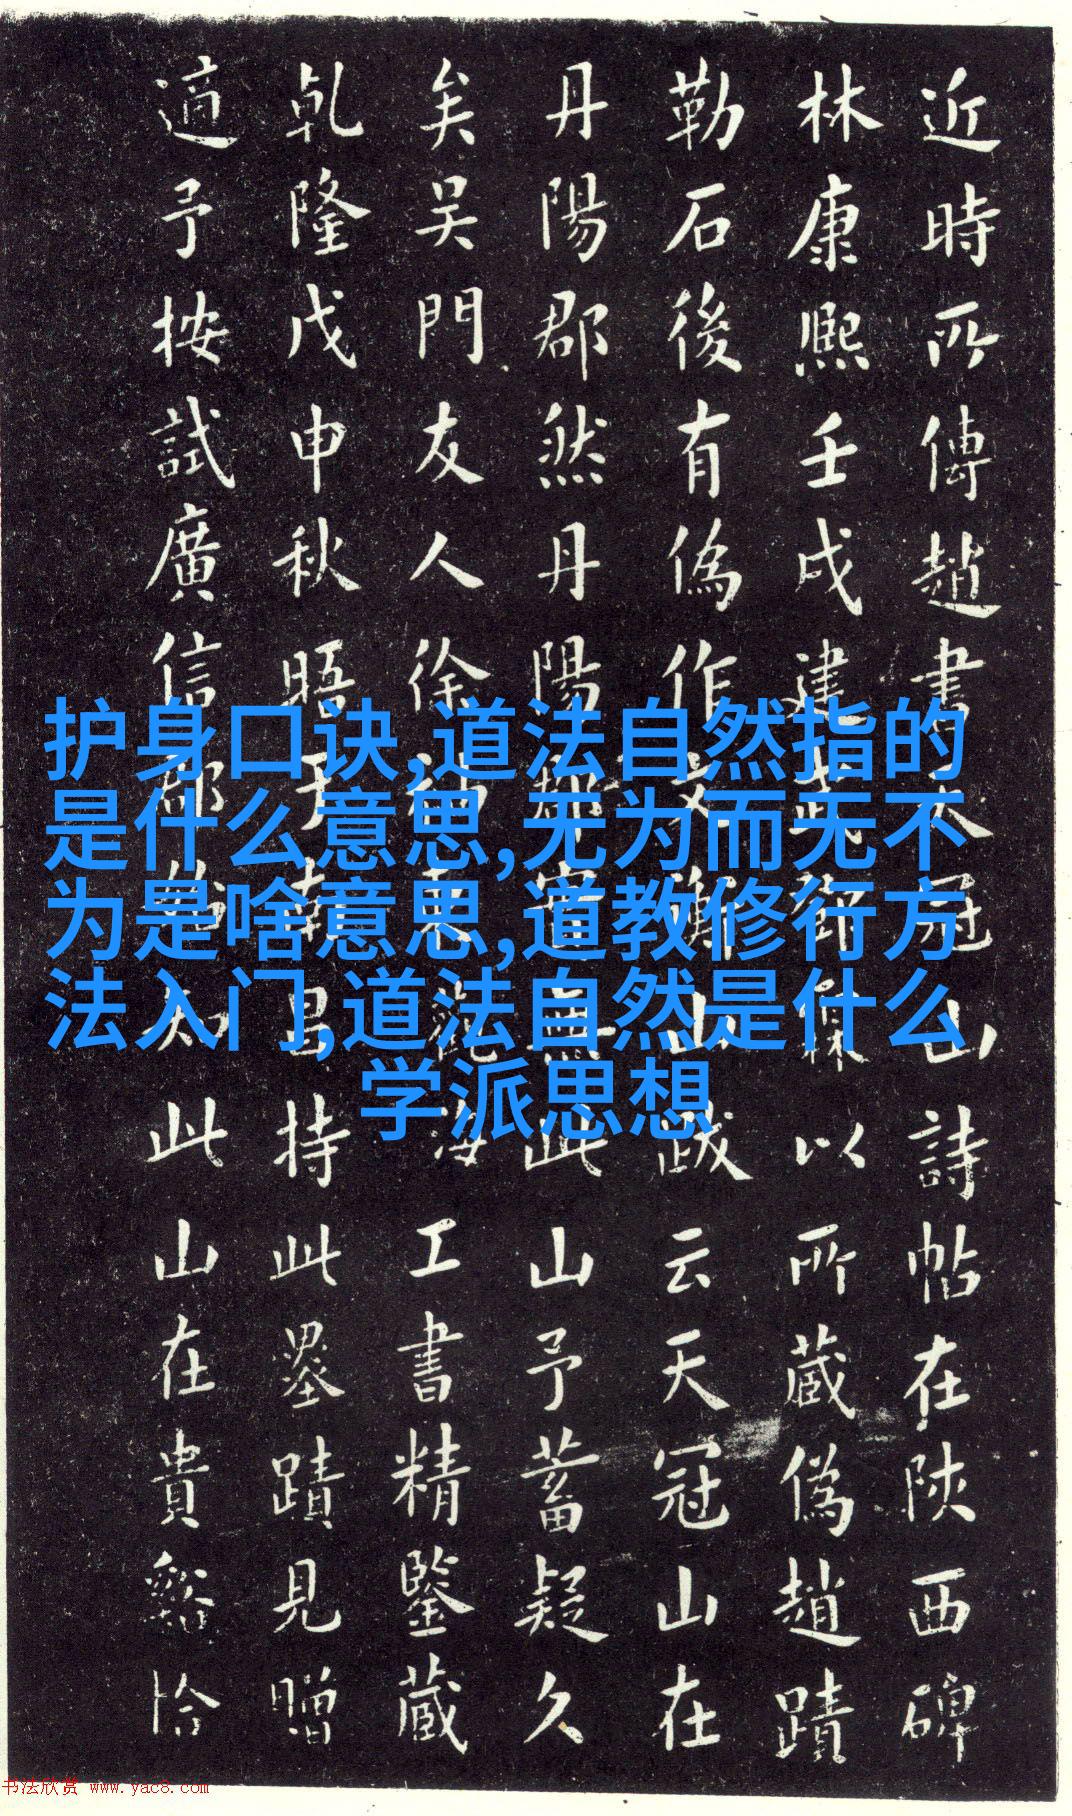 近時所傳趙書天冠山詩帖在陝西碑
林康熙壬戌建武以所藏偽趙蹟
勒石後有偽作文衡山跋云天冠山在
丹陽郡然丹陽郡實無此山予蓄疑久
矣吳門友人徐海工書精鑒藏
乾隆戊申秋晤于南昌持此墨蹟見贈
適予按試廣信郡知此山在貴谿恰
护身口诀,道法自然指的
是什么意思,无为而无不
为是啥意思,道教修行方
法入门,道法自然是什么
学派思想
书法欣赏 www.yac8.com